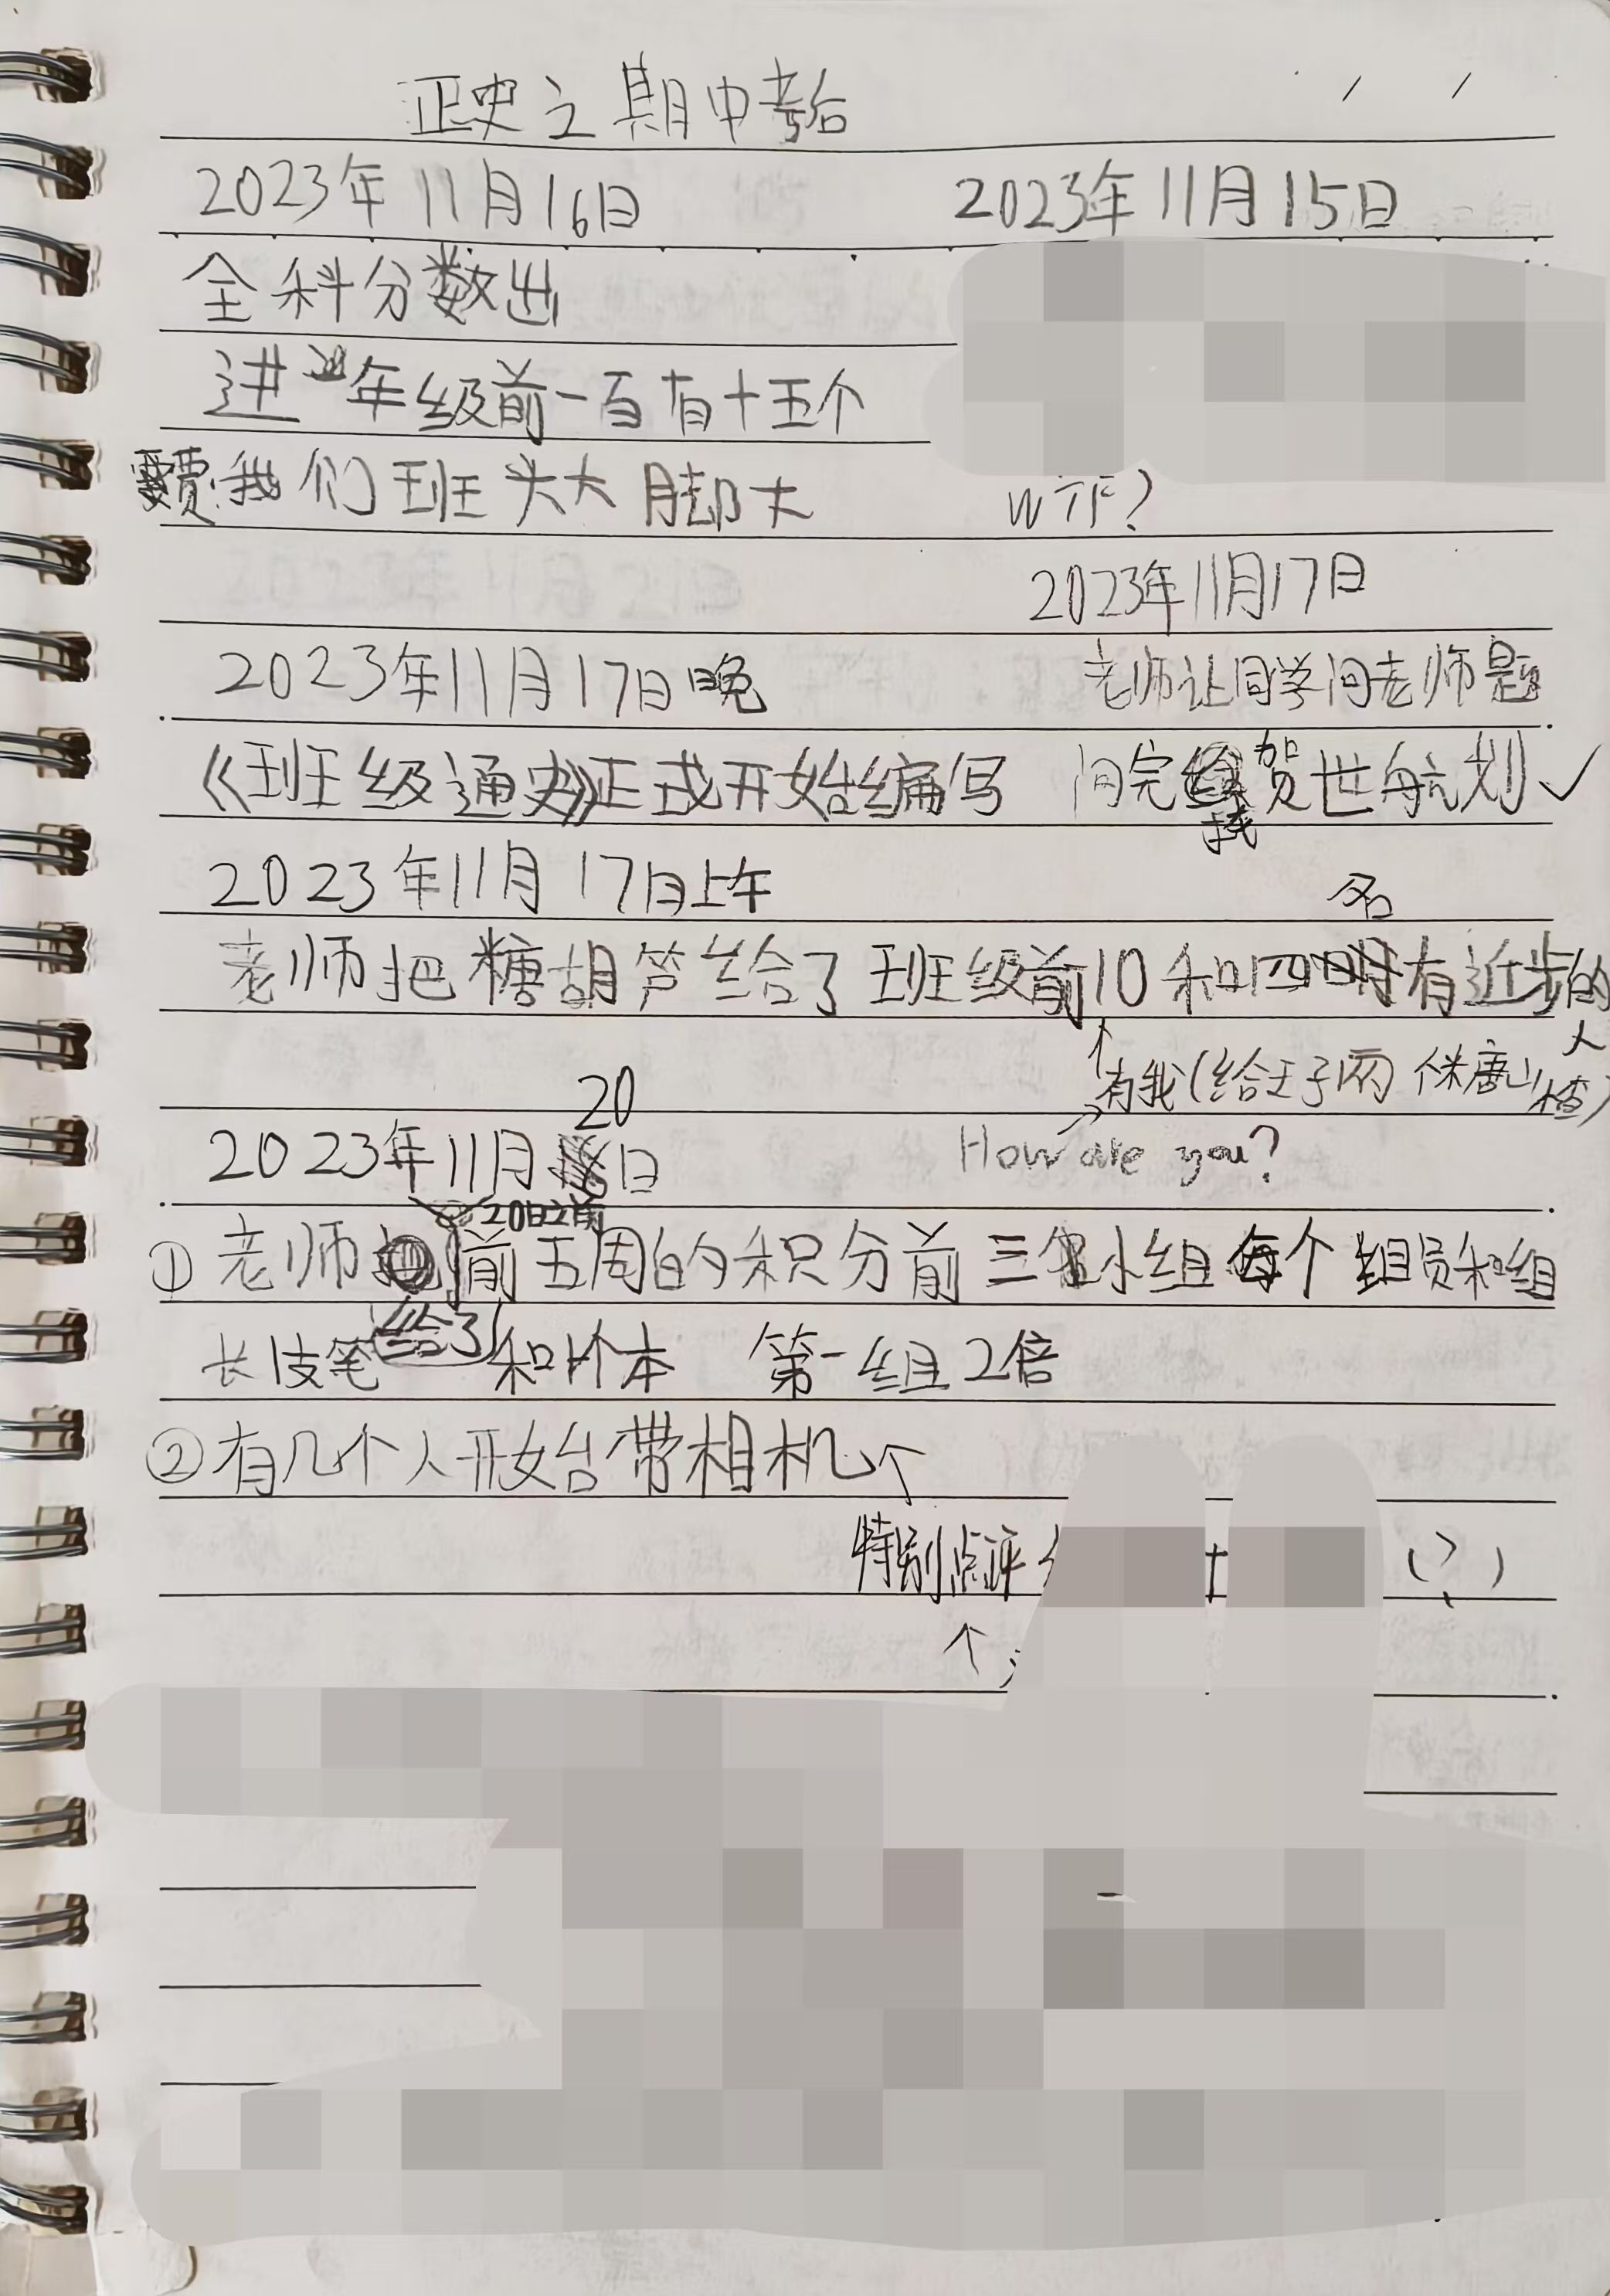 正史之期中考后
2023年11月16日
2023年11月15日
全科分数出
进年级前一百有十五个
贾:我们班头大脚大
WTF?
2023年11月17日
2023年11月17日晚
老师让同学问老师题
《班级通史》正式开始编写
问完找贺世航划✓
2023年11月17日上午
名
老师把糖胡芦给了班级前10和四有近步的
人
↑有我(给王子雨 侎唐山楂)
20
2023年11月日
How are you?
20日之前
①老师前五周的积分前三名小组每个组员和组
长1支笔给了和1个本 第一组2倍
②有几个人开始带相机↑
特别点评
(?)
↑